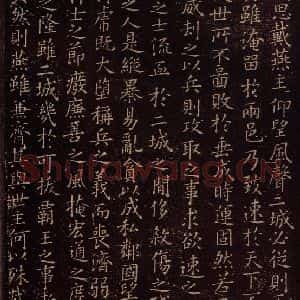 思戴燕主仰望風聲二城必從則
雖淹留於兩邑乃致速於天下
世所不圖敗於垂成時運固然若
威劫之以兵則攻取之事求欲速之
之士流血於二城之間侈殺傷之
之人是縱暴易亂貪以成私鄰國望
虎既大墮稱兵之義而喪濟弱
士之節廢廉善之風掩宏通之度
之隆雖二城幾於可拔霸王之事
然則燕雖兼齊其與世主何以殊哉
Shufawang.cn